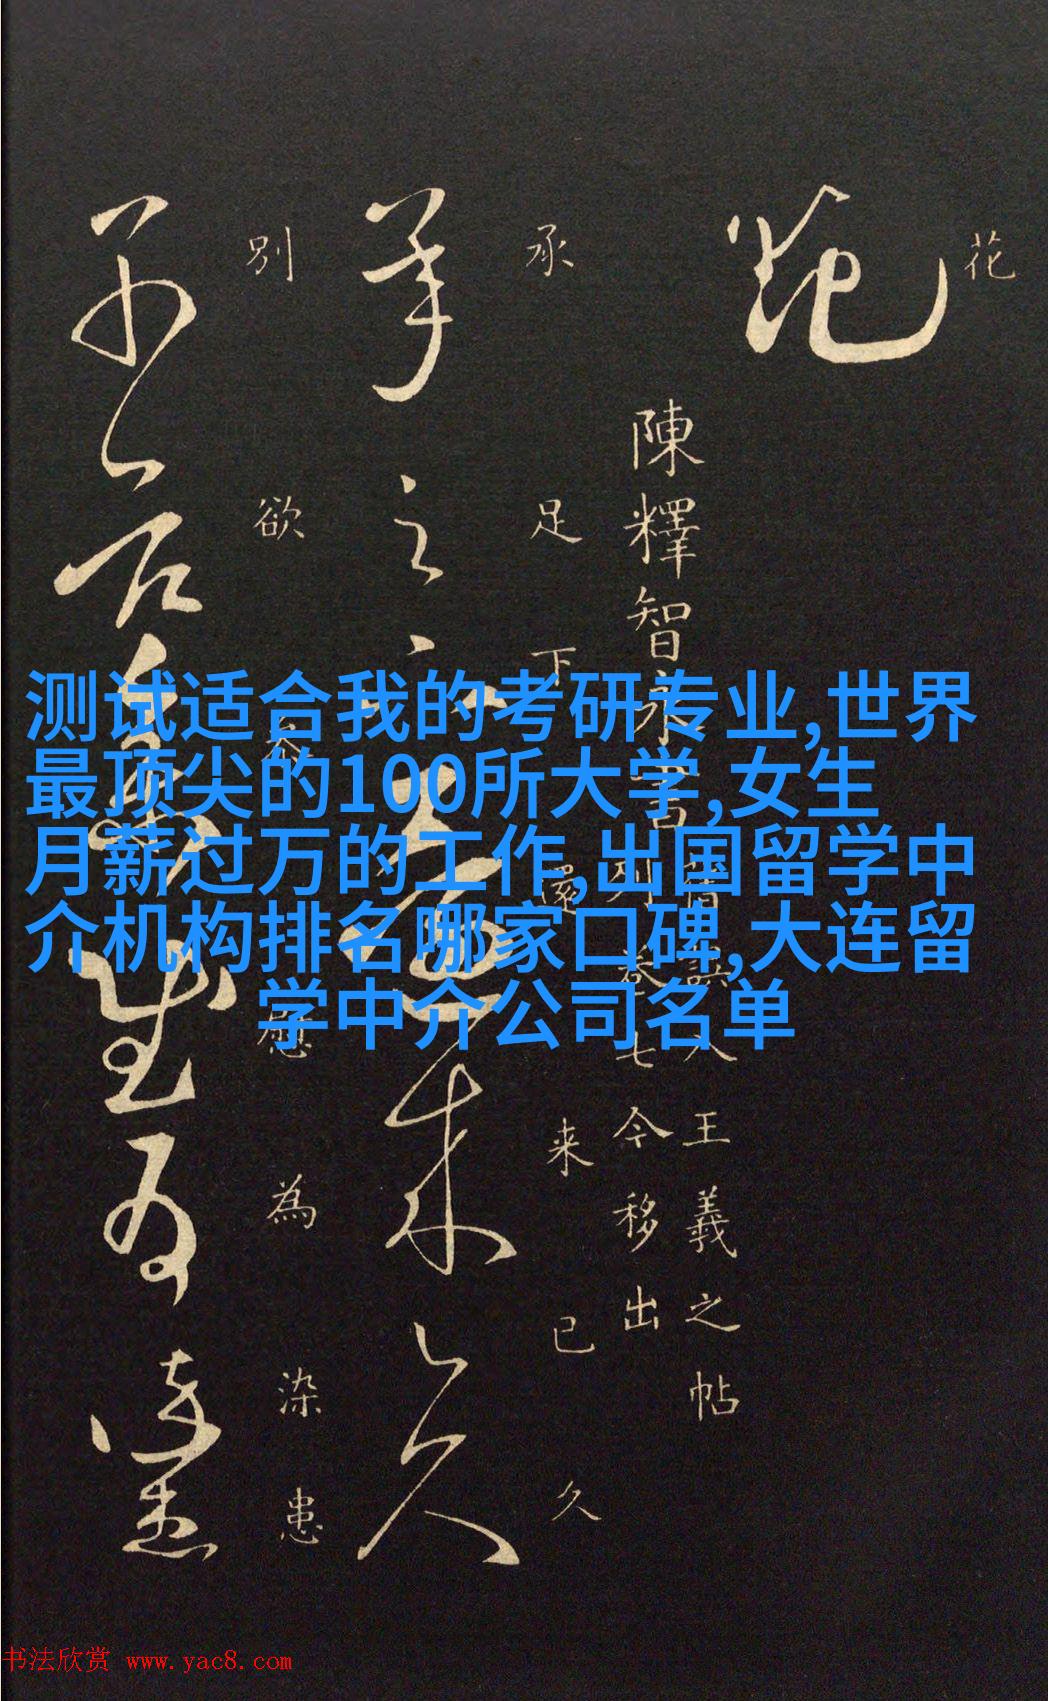 花
花
陳釋智永書
誤入王羲之帖
列卷七今移出
承足下還来已久
承足下還来已久
別欲慰為染患
測试适合我的考研专业,世界
最顶尖的100所大学,女生
月薪过万的工作,出国留学中
介机构排名哪家口碑,大连留
学中介公司名单
书法欣赏 www.yac8.com